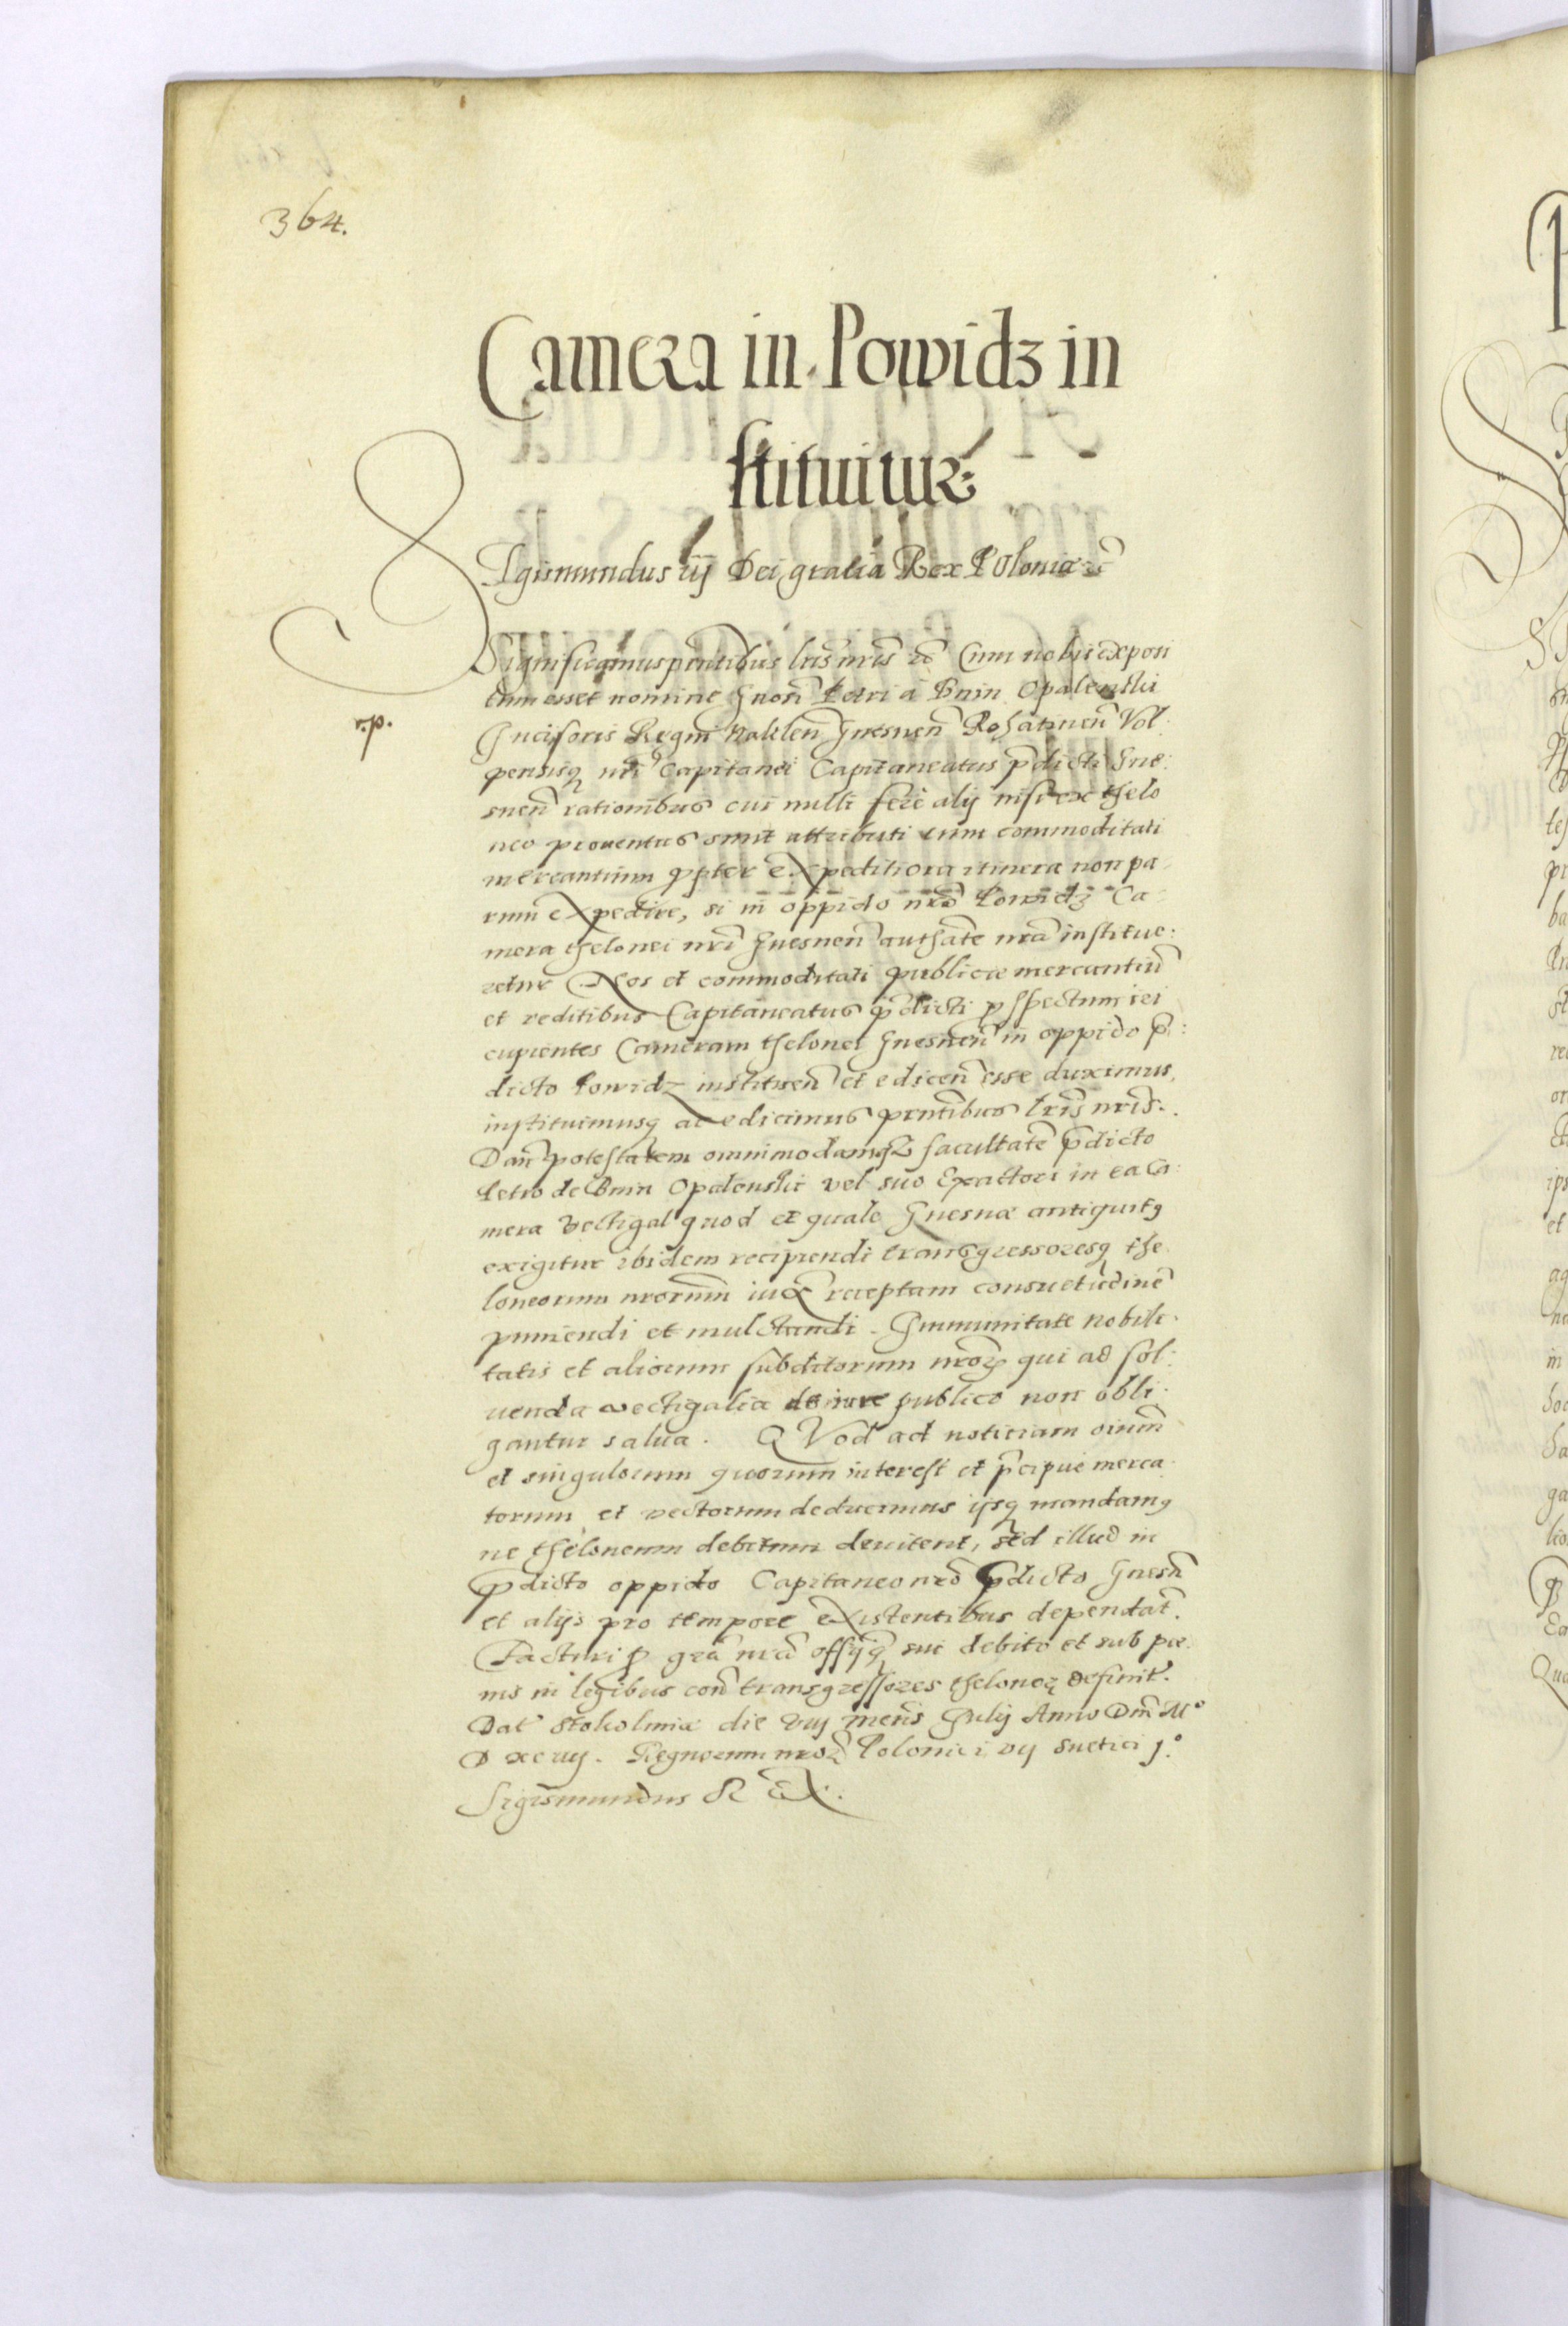 364.
Camera in Powidz in
stituitur
SIgismundus iij Dei gratia Rex Poloniæ &c̃
Significamus pñtibus lr̃is nr̃is &c̃ Cum nobis exposi
tum esset nomine Gnosi Petri a Bnin Opalenski
r.p.
Incisoris Regni Naklen̄ Gnesnen̄ Rohatinen̄ Vol
pensisq nr̃i Capitanei Capitaneatus p̃dicti Gne:
snen̄ rationibus cui nulli fere alij nisi ex thelo
neo prouentus sunt attributi cum commoditati
mercantium ꝓpter expeditiora itinera non pa
rum expedire, si in oppido nr̃o Powidz Ca
mera thelonei nr̃i Gnesnen̄ authate nr̃a institue:
retur Nos et commoditati publicæ mercantiũ
et reditibus Capitaneatus p̃dicti ꝓspectum iri
cupientes Cameram thelonei Gnesnen̄ in oppido p̃:
dicto Powidz instituen̄ et edicen̄ esse duximus,
instituimusq ac edicimus pñtibus lr̃is nr̃is.
Dan̄ potestatem omnimodamqz facultatẽ p̃dicto
Petro de Bnin Opalenski vel suo Exactori in ea Ca:
mera vectigal quod et quale Gnesnæ antiquitꝰ
exigitur ibidem recipiendi transgressoresq the
loneorum nrorum iuxta receptam consuetudinẽ
puniendi et mulctandi. Immunitate nobili:
tatis et aliorum subditorum nroꝝ qui ad sol:
uenda vectigalia de iure publico non obli:
gantur salua. QVod ad noticiam oium̄
et singulorum quorum interest et p̃cipue merca
torum et vectorum deducimus ijsq mandamꝰ
ne theloneum debitum deuitent, sed illud in
p̃dicto oppido Capitaneo nr̃o p̃dicto Gnesñ
et alijs pro tempore existentibus dependat̃.
Facturi ꝓ gr̃a nr̃a offijq sui debito et sub pæ
nis in legibus con̄ transgressores theloneꝝ definit̃.
Dat̃ Stokolmiæ die viij mens̃ Julij Anno Dnĩ Mº
D xciiij. Regnorum nroꝝ Polonici vij Suetici jº.
Sigismundus REX.